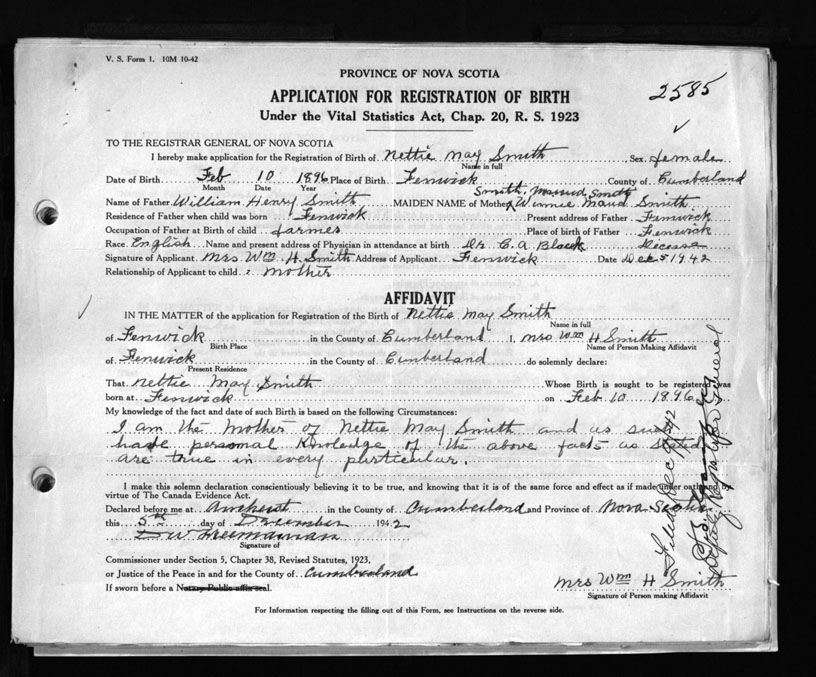 V. S. Form 1. 10M 10-42
PROVINCE OF NOVA SCOTIA
2585
APPLICATION FOR REGISTRATION OF BIRTH
Under the Vital Statistics Act, Chap. 20, R. S. 1923
TO THE REGISTRAR GENERAL OF NOVA SCOTIA
I hereby make application for the Registration of Birth of Nettie May Smith Sex female
Name in full
Date of Birth Feb 10 1896 Place of Birth Fenwick County of Cumberland
Month Date Year
Smith, Maud Smith
Name of Father William Henry Smith MAIDEN NAME of Mother Winnie Maud Smith
Residence of Father when child was born Fenwick Present address of Father Fenwick
Occupation of Father at Birth of child farmer Place of birth of Father Fenwick
Race English Name and present address of Physician in attendance at birth Dr C. A. Black
Signature of Applicant Mrs Wm H. Smith Address of Applicant Fenwick Date Dec 5 1942
Relationship of Applicant to child : mother
AFFIDAVIT
IN THE MATTER of the application for Registration of the Birth of Nettie May Smith
Name in full
of Fenwick in the County of Cumberland I, Mrs Wm H Smith
Birth Place Name of Person Making Affidavit
of Fenwick in the County of Cumberland do solemnly declare:
Present Residence
That Nettie May Smith Whose Birth is sought to be registered was
born at Fenwick on Feb 10 1896
My knowledge of the fact and date of such Birth is based on the following Circumstances:
I am the Mother of Nettie May Smith and as such
have personal Knowledge of the above facts as stated
are true in every particular.
I make this solemn declaration conscientiously believing it to be true, and knowing that it is of the same force and effect as if made under oath and by
virtue of The Canada Evidence Act.
Declared before me at Amherst in the County of Cumberland and Province of Nova Scotia
this 5th day of December 1942
Signature of
Commissioner under Section 5, Chapter 38, Revised Statutes, 1923,
or Justice of the Peace in and for the County of Cumberland
If sworn before a Notary Public affix seal.
Mrs Wm H Smith
Signature of Person making Affidavit
For Information respecting the filling out of this Form, see Instructions on the reverse side.
Filed Dec 9 1942
Deputy Registrar General